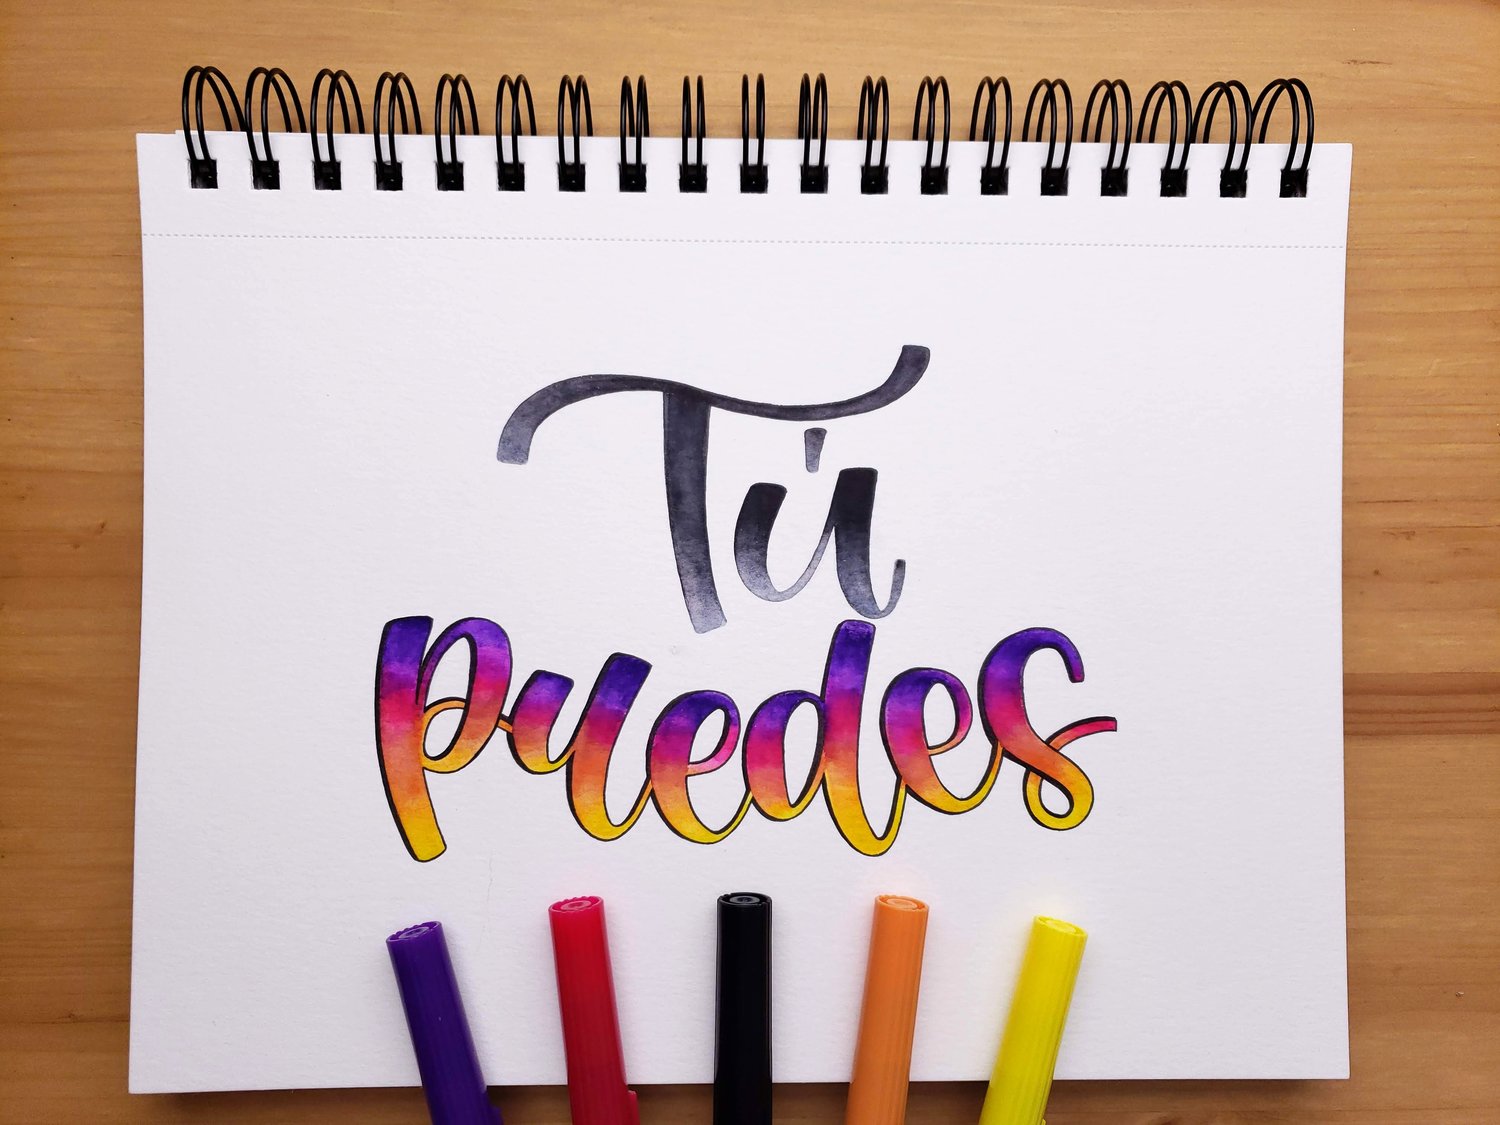 Tú
puedes